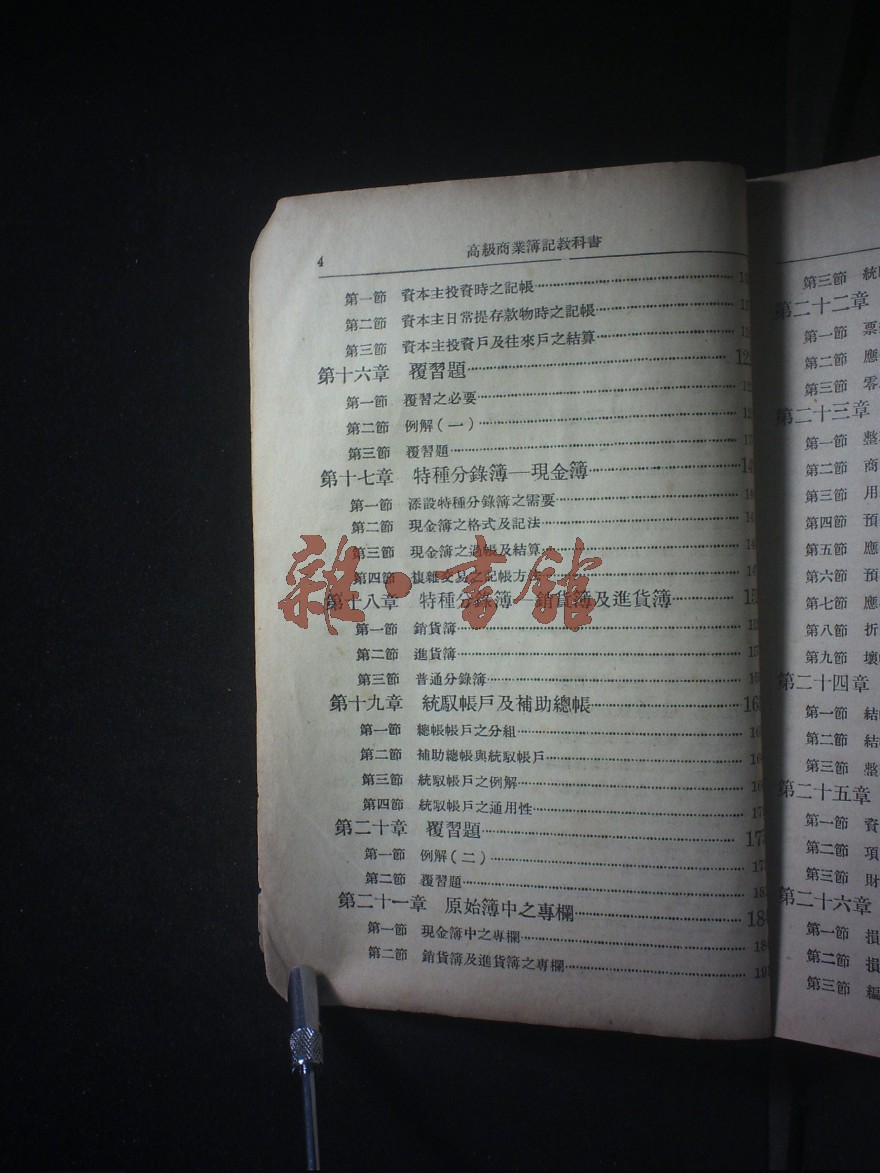 4 高級商業簿記教科書
第一節 資本主投資時之記帳
第二節 資本主日常提存款物時之記帳
第三節 資本主投資戶及往來戶之結算
第十六章 覆習題
第一節 覆習之必要
第二節 例解(一)
第三節 覆習題
第十七章 特種分錄簿—現金簿
第一節 添設特種分錄簿之需要
第二節 現金簿之格式及記法
第三節 現金簿之過帳及結算
第四節 複雜交易之記帳方法
雜·書館
第十八章 特種分錄簿—銷貨簿及進貨簿
第一節 銷貨簿
第二節 進貨簿
第三節 普通分錄簿
第十九章 統馭帳戶及補助總帳
第一節 總帳帳戶之分組
第二節 補助總帳與統馭帳戶
第三節 統馭帳戶之例解
第四節 統馭帳戶之通用性
第二十章 覆習題
第一節 例解(二)
第二節 覆習題
第二十一章 原始簿中之專欄
第一節 現金簿中之專欄
第二節 銷貨簿及進貨簿之專欄
第三節 統
第二十二章
第一節 票
第二節 應
第三節 零
第二十三章
第一節 整
第二節 商
第三節 用
第四節 預
第五節 應
第六節 預
第七節 應
第八節 折
第九節 壞
第二十四章
第一節 結
第二節 結
第三節 整
第二十五章
第一節 資
第二節 項
第三節 財
第二十六章
第一節 損
第二節 損
第三節 編